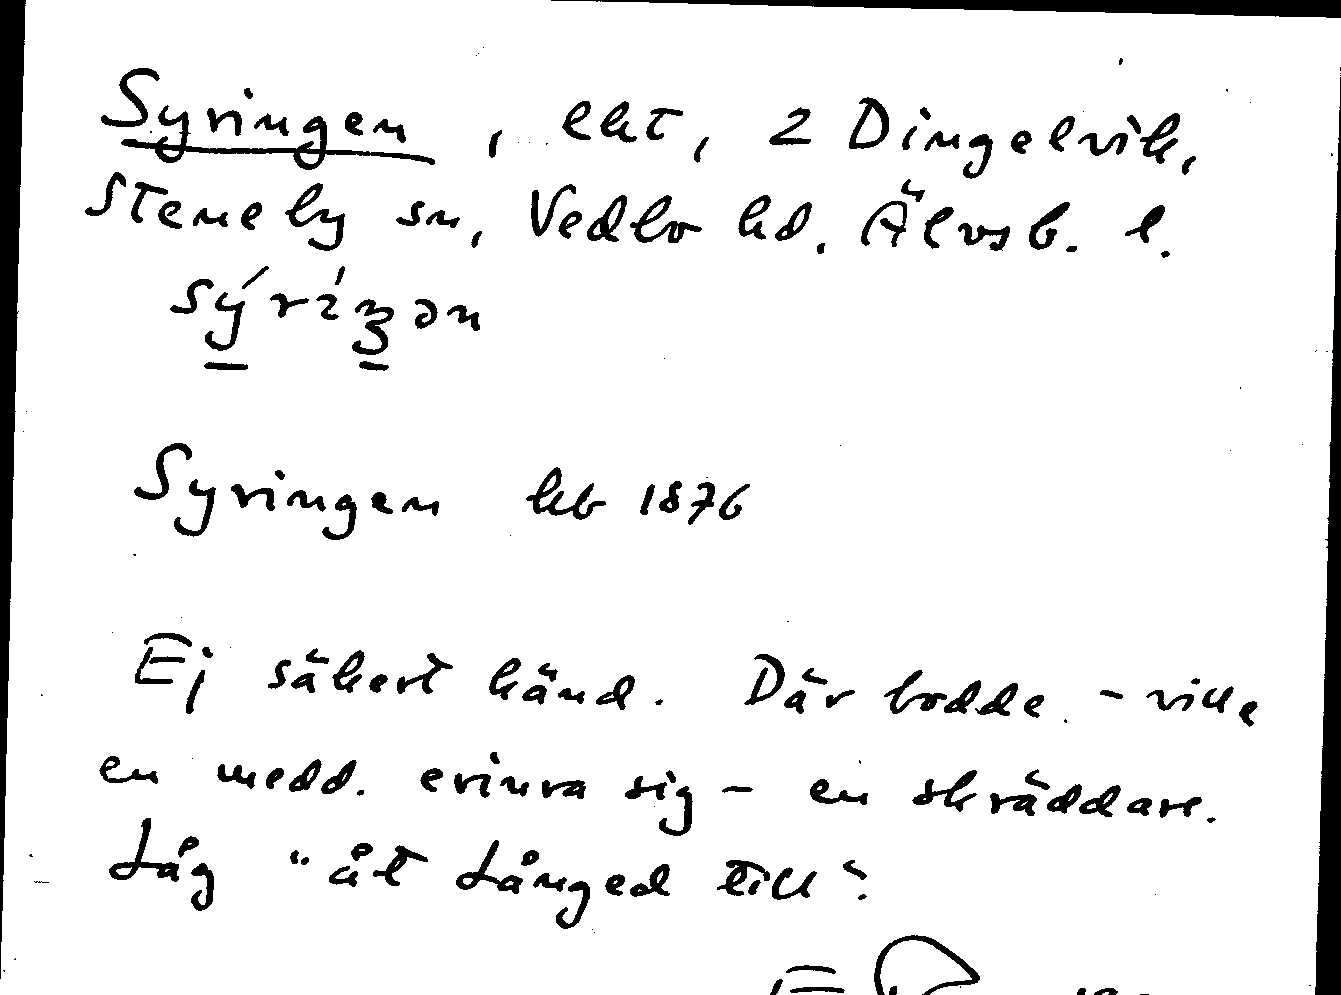 Syringen, lht, 2 Dingelvik,
Steneby sn, Vedbo hd. Älvsb. l.
Syringen hb 1876
Ej säkert känd. Där bodde - ville
en medd. erinra sig - en skräddare.
Låg "åt Långed till".